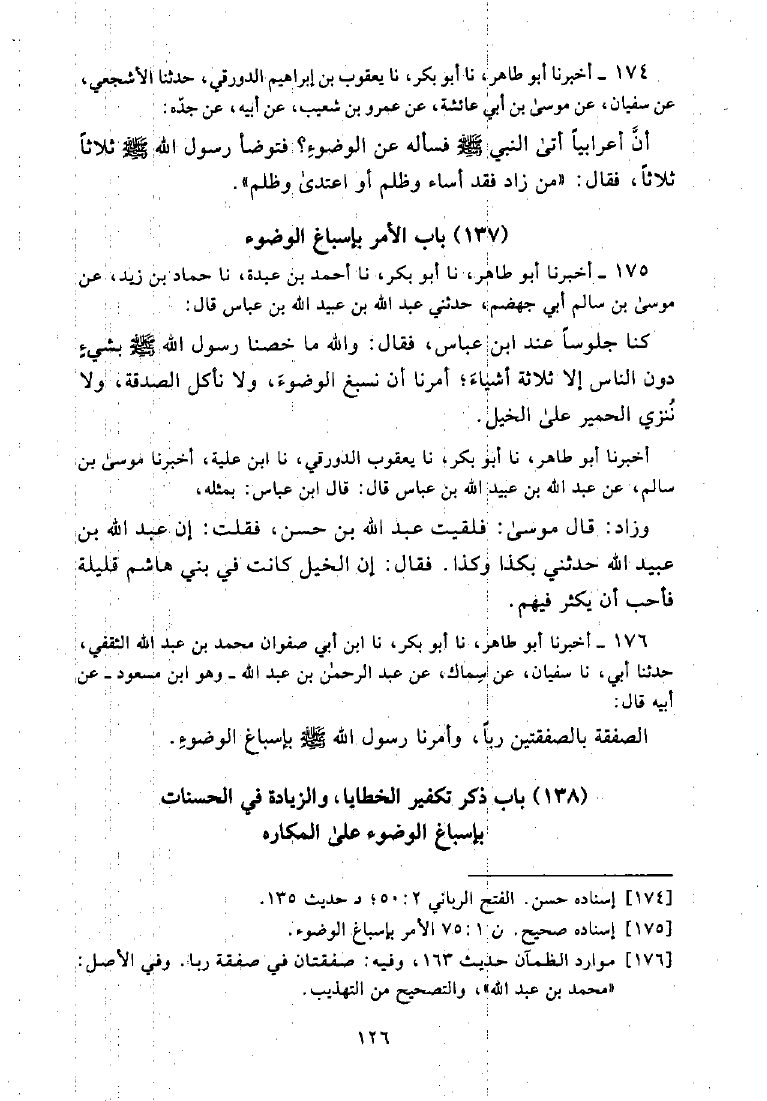 ١٧٤ ـ أخبرنا أبو طاهر، نا أبو بكر، نا يعقوب بن إبراهيم الدورقي، حدثنا الأشجعي،
عن سفيان، عن موسىٰ بن أبي عائشة، عن عمرو بن شعيب، عن أبيه، عن جدّه:
أنَّ أعرابياً أتىٰ النبي ﷺ فسأله عن الوضوءِ؟ فتوضأ رسول الله ﷺ ثلاثاً
ثلاثاً، فقال: «من زاد فقد أساء وظلم أو اعتدىٰ وظلم».
(١٣٧) باب الأمر بإسباغ الوضوء
١٧٥ ـ أخبرنا أبو طاهر، نا أبو بكر، نا أحمد بن عبدة، نا حماد بن زيد، عن
موسىٰ بن سالم أبي جهضم، حدثني عبد الله بن عبيد الله بن عباس قال:
كنا جلوساً عند ابن عباس، فقال: والله ما خصنا رسول الله ﷺ بشيءٍ
دون الناس إلا ثلاثة أشياءَ؛ أمرنا أن نسبغ الوضوءَ، ولا نأكل الصدقة، ولا
نُنزي الحمير علىٰ الخيل.
أخبرنا أبو طاهر، نا أبو بكر، نا يعقوب الدورقي، نا ابن علية، أخبرنا موسىٰ بن
سالم، عن عبد الله بن عبيد الله بن عباس قال: قال ابن عباس: بمثله،
وزاد: قال موسىٰ: فلقيت عبد الله بن حسن، فقلت: إن عبد الله بن
عبيد الله حدثني بكذا وكذا. فقال: إن الخيل كانت في بني هاشم قليلة
فأحب أن يكثر فيهم.
١٧٦ ـ أخبرنا أبو طاهر، نا أبو بكر، نا ابن أبي صفوان محمد بن عبد الله الثقفي،
حدثنا أبي، نا سفيان، عن سِماك، عن عبد الرحمٰن بن عبد الله ـ وهو ابن مسعود ـ عن
أبيه قال:
الصفقة بالصفقتين رباً، وأمرنا رسول الله ﷺ بإسباغ الوضوءِ.
(١٣٨) باب ذكر تكفير الخطايا، والزيادة في الحسنات
بإسباغ الوضوء علىٰ المكاره
[١٧٤] إسناده حسن. الفتح الرباني ٢:٥٠؛ د حديث ١٣٥.
[١٧٥] إسناده صحيح. ن ١:٧٥ الأمر بإسباغ الوضوء.
[١٧٦] موارد الظمآن حديث ١٦٣، وفيه: صفقتان في صفقة ربا. وفي الأصل:
«محمد بن عبد الله»، والتصحيح من التهذيب.
١٢٦